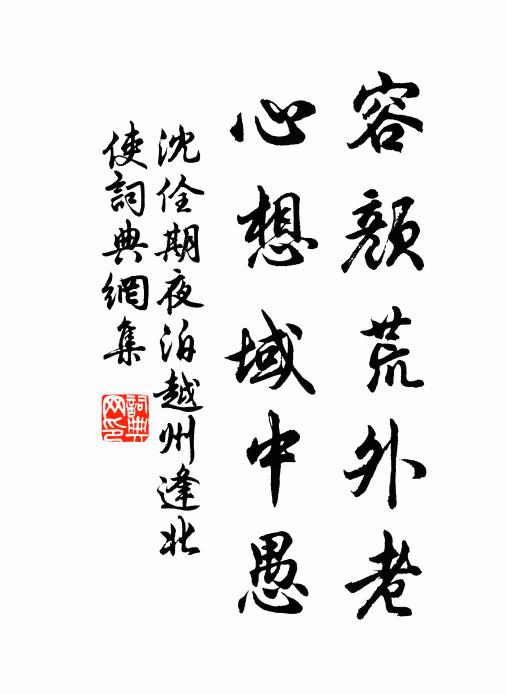 容顏荒外老
心想域中愚
沈佺期夜泊越州逢北
使詞典網集
詞典
网印